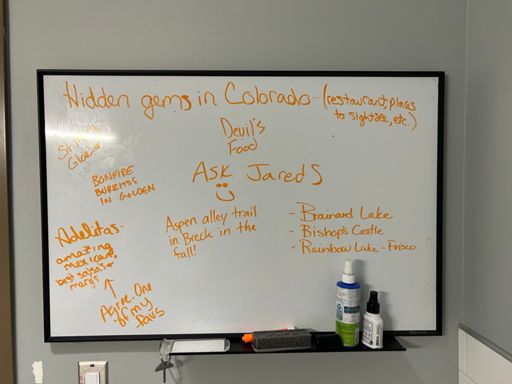 Hidden gems in Colorado (restaurant, places
to sightsee, etc.)
Devil's
Food
St. Mary's
Glacier
BONFIRE
BURRITOS
IN GOLDEN
ASK Jared S
Aspen alley trail
in Breck in the
fall!
- Brainard Lake
- Bishop's Castle
- Rainbow Lake - Frisco
Adelitas-
amazing
mexican
best salsa's +
margs
Agree. One
of my
favs